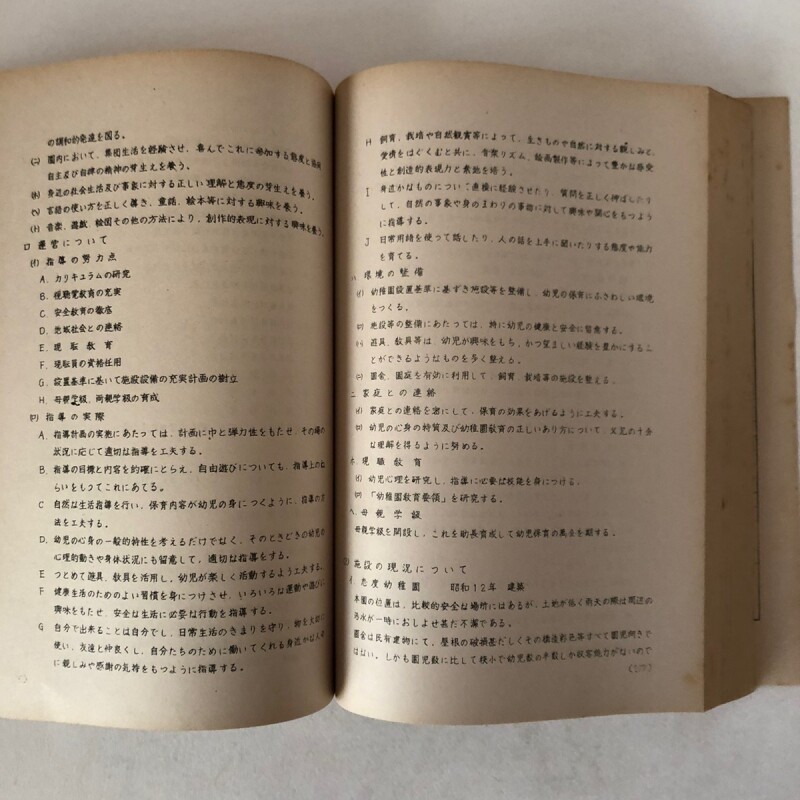 の調和的発達を図る。
(ニ) 園内において、集団生活を経験させ、喜んでこれに参加する態度と協同
自主及び自律の精神の芽生えを養う。
(ホ) 身辺の社会生活及び事象に対する正しい理解と態度の芽生えを養う。
(ヘ) 言語の使い方を正しく導き、童話、絵本等に対する興味を養う。
(ト) 音楽、遊戯、絵画その他の方法により、創作的表現に対する興味を養う。
ロ 運営について
(イ) 指導の努力点
A. カリキュラムの研究
B. 視聴覚教育の充実
C. 安全教育の徹底
D. 地域社会との連絡
E. 現職教育
F. 現職員の資格任用
G. 設置基準に基いて施設設備の充実計画の樹立
H. 母親学級、両親学級の育成
(ロ) 指導の実際
A. 指導計画の実施にあたっては、計画に巾と弾力性をもたせ、その場の
状況に応じて適切な指導を工夫する。
B. 指導の目標と内容を的確にとらえ、自由遊びについても、指導上のね
らいをもってこれにあてる。
C 自然な生活指導を行い、保育内容が幼児の身につくように、指導の方
法を工夫する。
D. 幼児の心身の一般的特性を考えるだけでなく、そのときどきの幼児の
心理的動きや身体状況にも留意して、適切な指導をする。
E つとめて遊具、教具を活用し、幼児が楽しく活動するよう工夫する。
F 健康生活のためのよい習慣を身につけさせ、いろいろな運動や遊びに
興味をもたせ、安全な生活に必要な行動を指導する。
G 自分で出来ることは自分でし、日常生活のきまりを守り、物を大切に
使い、友達と仲良くし、自分たちのために働いてくれる身近かな人々
に親しみや感謝の気持をもつように指導する。
H 飼育、栽培や自然観察等によって、生きものや自然に対する親しみと、
愛情をはぐくむと共に、音楽リズム、絵画製作等によって豊かな感受
性と創造的表現力と素地を培う。
I 身近かなものについて直接に経験させたり、質問を正しく伸ばしたり
して、自然の事象や身のまわりの事物に対して興味や関心をもつよう
に指導する。
J 日常用語を使って話したり、人の話を上手に聞いたりする態度や能力
を育てる。
ハ 環境の整備
(イ) 幼稚園設置基準に基ずき施設等を整備し、幼児の保育にふさわしい環境
をつくる。
(ロ) 施設等の整備にあたっては、特に幼児の健康と安全に留意する。
(ハ) 遊具、教具等は、幼児が興味をもち、かつ望ましい経験を豊かにするこ
とができるようなものを多く整える。
(ニ) 園舎、園庭を有効に利用して、飼育、栽培等の施設を整える。
ニ 家庭との連絡
(イ) 家庭との連絡を密にして、保育の効果をあげるように工夫する。
(ロ) 幼児の心身の特質及び幼稚園教育の正しいあり方について、父兄の十分
な理解を得るように努める。
ホ 現職教育
(イ) 幼児心理を研究し、指導に必要な技能を身につける。
(ロ) 「幼稚園教育要領」を研究する。
ヘ 母親学級
母親学級を開設し、これを助長育成して幼児保育の萬全を期する。
施設の現況について
イ 志度幼稚園 昭和12年 建築
本園の位置は、比較的安全な場所にはあるが、土地が低く雨天の際は周辺の
汚水が一時におしよせ甚だ不潔である。
園舎は民有建物にて、屋根の破損甚だしくその構造彩色等すべて園児向きで
はない。しかも園児数に比して狭小で幼児数の半数しか収容能力がないので